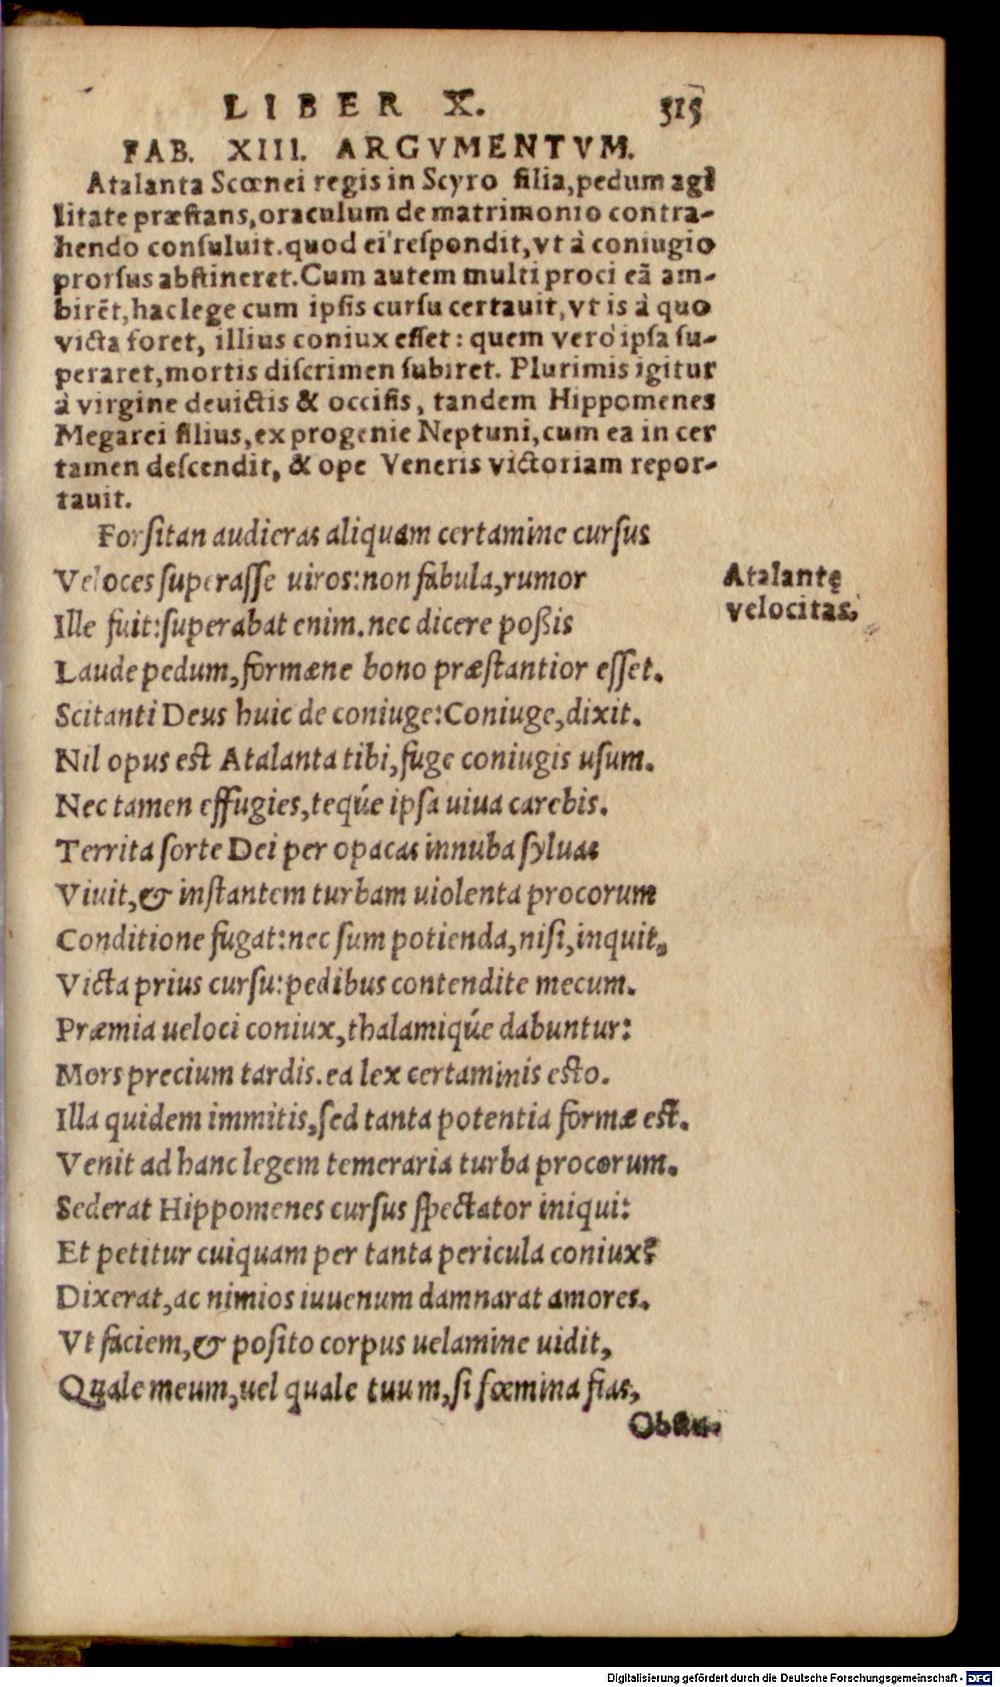 LIBER X. 315
FAB. XIII. ARGVMENTVM.
Atalanta Scœnei regis in Scyro filia, pedum agi
litate præstans, oraculum de matrimonio contra-
hendo consuluit. quod ei respondit, vt à coniugio
prorsus abstineret. Cum autem multi proci eã am-
birẽt, hac lege cum ipsis cursu certauit, vt is à quo
victa foret, illius coniux esset: quem verò ipsa su-
peraret, mortis discrimen subiret. Plurimis igitur
à virgine deuictis & occisis, tandem Hippomenes
Megarei filius, ex progenie Neptuni, cum ea in cer
tamen descendit, & ope Veneris victoriam repor-
tauit.
Forſitan audieras aliquam certamine curſus
Veloces ſuperaſſe uiros: non fabula, rumor
Ille fuit: ſuperabat enim. nec dicere poßis
Laude pedum, formæne bono præſtantior eſſet.
Scitanti Deus huic de coniuge: Coniuge, dixit.
Nil opus eſt Atalanta tibi, fuge coniugis uſum.
Nec tamen effugies, teq́ue ipſa uiua carebis.
Territa ſorte Dei per opacas innuba ſyluas
Viuit, & inſtantem turbam uiolenta procorum
Conditione fugat: nec ſum potienda, niſi, inquit,
Victa prius curſu: pedibus contendite mecum.
Præmia ueloci coniux, thalamiq́ue dabuntur:
Mors precium tardis. ea lex certaminis eſto.
Illa quidem immitis, ſed tanta potentia formæ eſt.
Venit ad hanc legem temeraria turba procorum.
Sederat Hippomenes curſus ſpectator iniqui:
Et petitur cuiquam per tanta pericula coniux?
Dixerat, ac nimios iuuenum damnarat amores.
Vt faciem, & poſito corpus uelamine uidit,
Quale meum, uel quale tuum, ſi fœmina fias,
Obſtu-
Atalantę
velocitas.
Digitalisierung gefördert durch die Deutsche Forschungsgemeinschaft - DFG